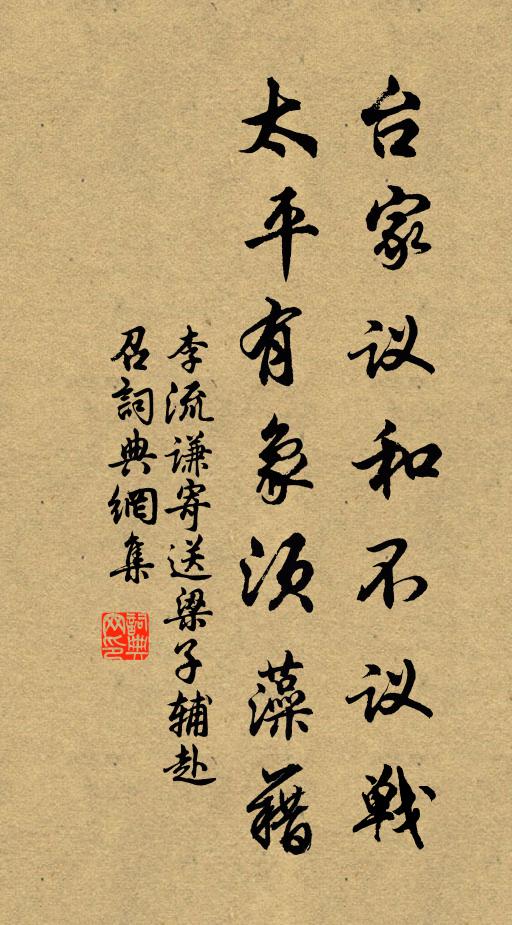 台家议和不议戦
太平有象须藻藉
李流谦寄送梁子辅赴
召詞典網集
詞典
网印